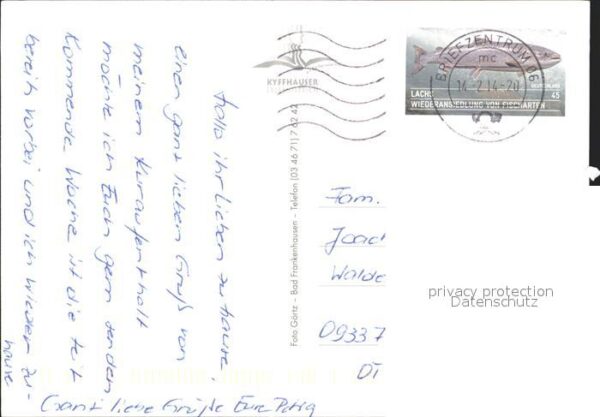 Hallo ihr Lieben zuhause.
einen ganz lieben Gruß von
meinem Kuraufenthalt
möchte ich Euch gern senden
Kommende Woche ist die Zeit
bereits vorbei und ich wieder zu-
hause
Ganz liebe Grüße Eure Petra
KYFFHÄUSER
Foto Görtz – Bad Frankenhausen – Telefon (03 46 71) 7 62 42
BRIEFZENTRUM 06
mc
14.2.14-20
LACHS
WIEDERANSIEDLUNG VON FISCHARTEN
DEUTSCHLAND
45
Fam.
Joach
Walde
09337
DT
privacy protection
Datenschutz